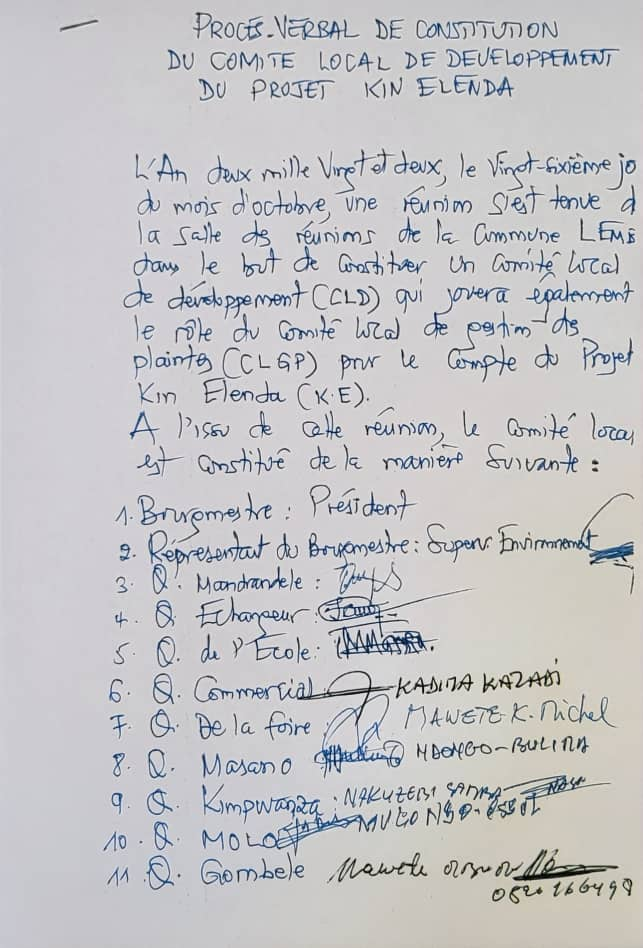 PROCÈS-VERBAL DE CONSTITUTION
DU COMITE LOCAL DE DEVELOPPEMENT
DU PROJET KIN ELENDA
L'An deux mille Vingt et deux, le Vingt-sixième jo
du mois d'octobre, une réunion s'est tenue à
la salle des réunions de la Commune LEMB
dans le but de constituer un Comité local
de développement (CLD) qui jouera également
le rôle du Comité local de gestion des
plaintes (CLGP) pour le compte du Projet
Kin Elenda (K.E).
A l'issu de cette réunion, le comité local
est constitué de la manière suivante :
1. Bourgomestre : Président
2. Représentant du Bourgomestre : Superv. Environnement
3. Q. Mandrandele :
4. Q. Echangeur :
5. Q. de l'Ecole :
6. Q. Commercial KADIMA KAZADI
7. Q. De la foire : MAWETE K. Michel
8. Q. Masano NDONGO-BULIMA
9. Q. Kimpwanza : NAKUZEBI
10. Q. MOLO
11. Q. Gombele Mawete